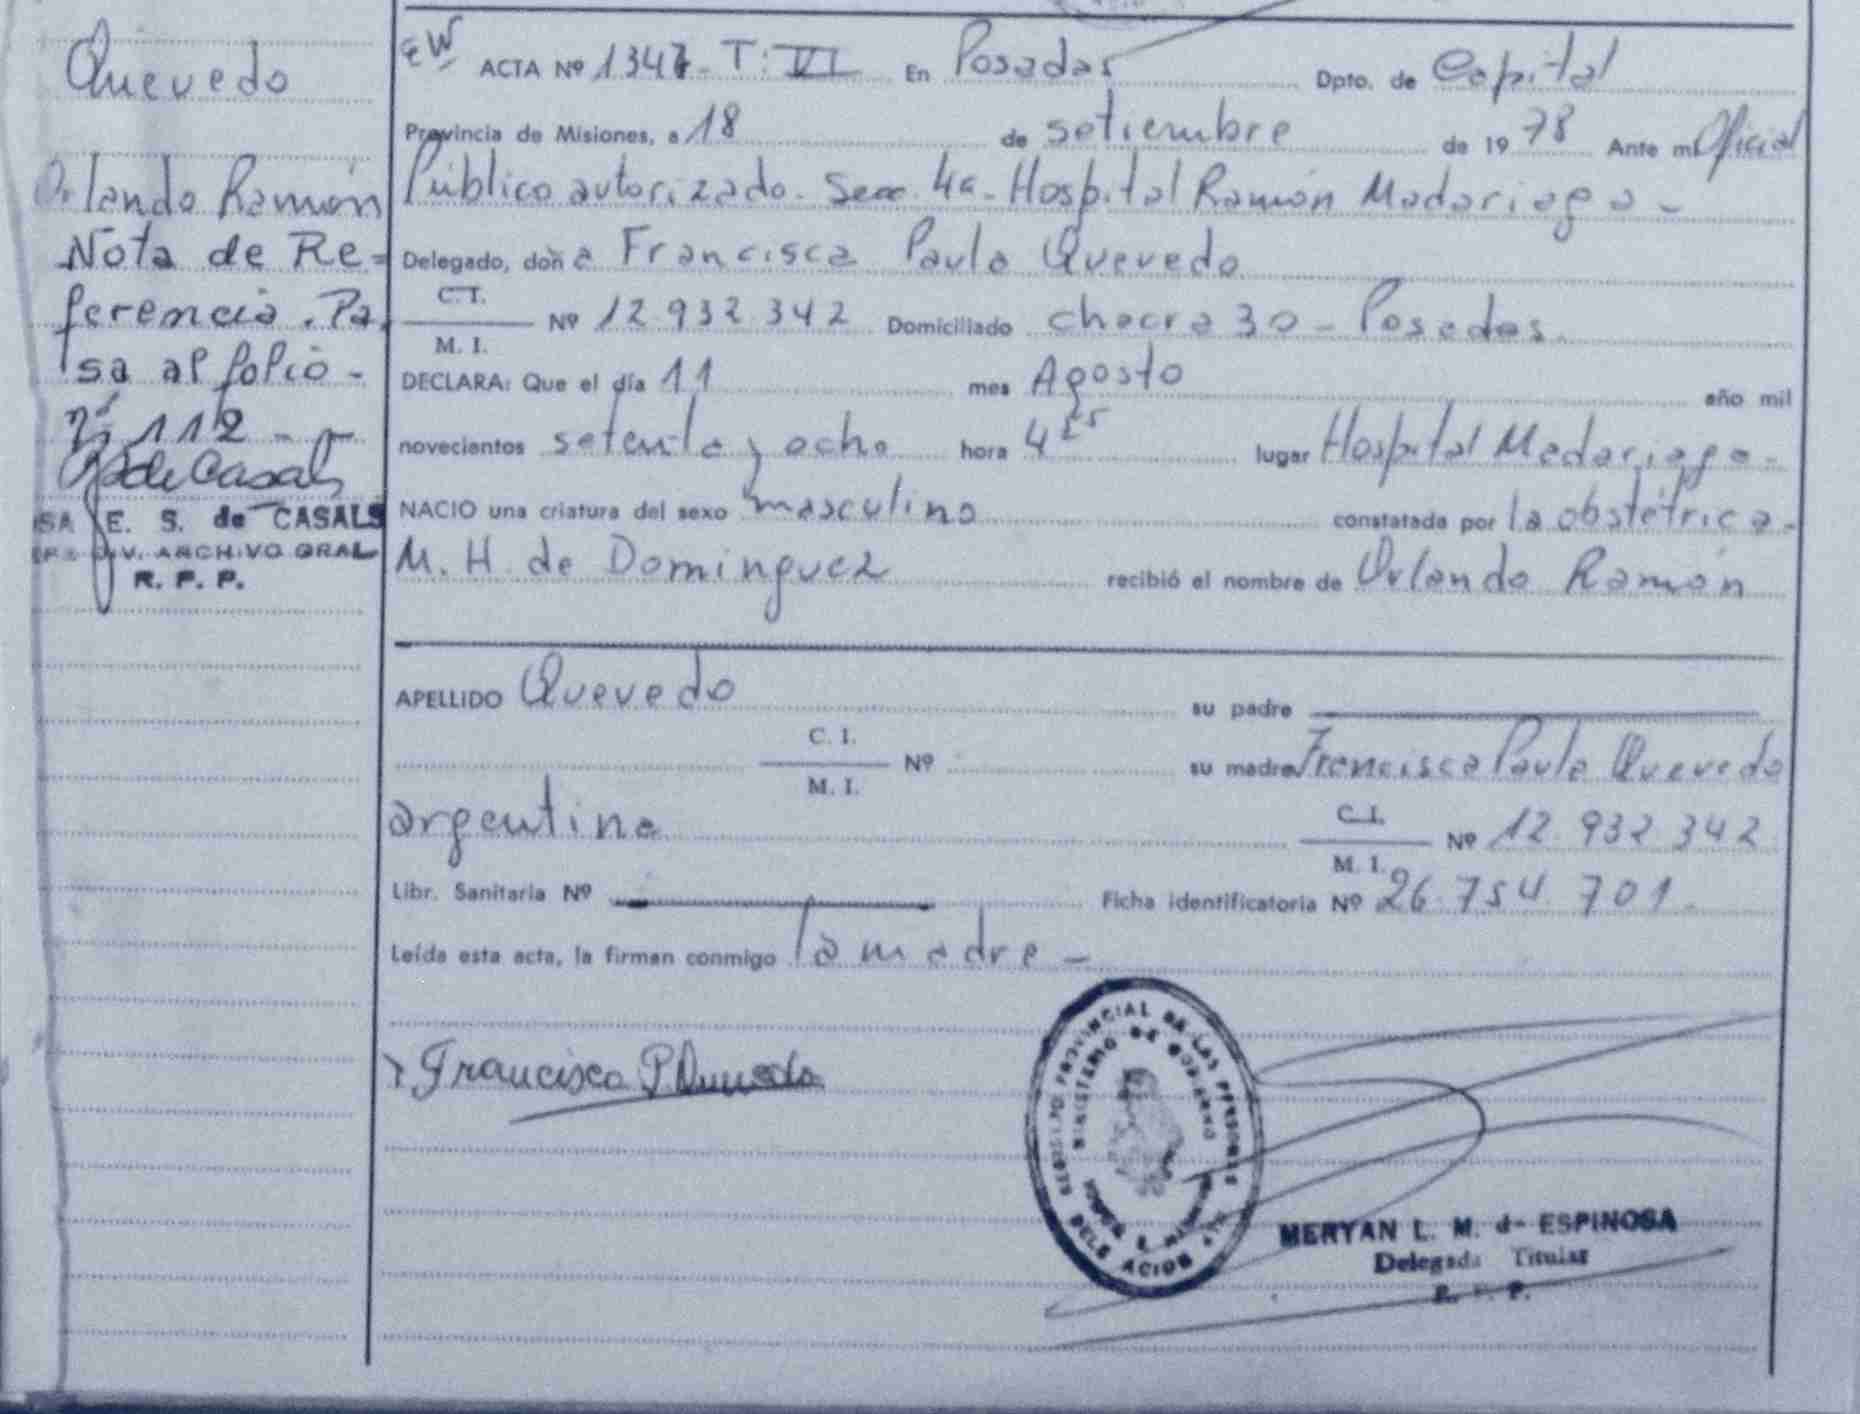 Quevedo
Orlando Ramón
Nota de Re=
ferencia. Pa.
sa al folio -
nº 112 - -
E. S. de CASALS
DIV. ARCHIVO GRAL
R. P. P.
ACTA Nº 1347 - T: VI En Posadas Dpto. de Capital
Provincia de Misiones, a 18 de setiembre de 1978 Ante mi Oficial
Público autorizado. Secc. 4a - Hospital Ramón Madariaga -
Delegado, doña Francisca Paula Quevedo
C. I.
M. I.
Nº 12.932.342 Domiciliado chacra 30 - Posadas.
DECLARA: Que el día 11 mes Agosto año mil
novecientos setenta y ocho hora 4 25 lugar Hospital Madariaga -
NACIO una criatura del sexo masculino constatada por la obstétrica -
M. H. de Dominguez recibió el nombre de Orlando Ramón
APELLIDO Quevedo su padre
C. I.
M. I.
Nº su madre Francisca Paula Quevedo
argentina C. I.
M. I.
Nº 12.932.342
Libr. Sanitaria Nº Ficha identificatoria Nº 26.754.701.
Leída esta acta, la firman conmigo la madre -
Francisca P Quevedo
REGISTRO PROVINCIAL DE LAS PERSONAS
MINISTERIO DE GOBIERNO
DELEGACION
MERYAN L. M. de ESPINOSA
Delegada Titular
R. P. P.